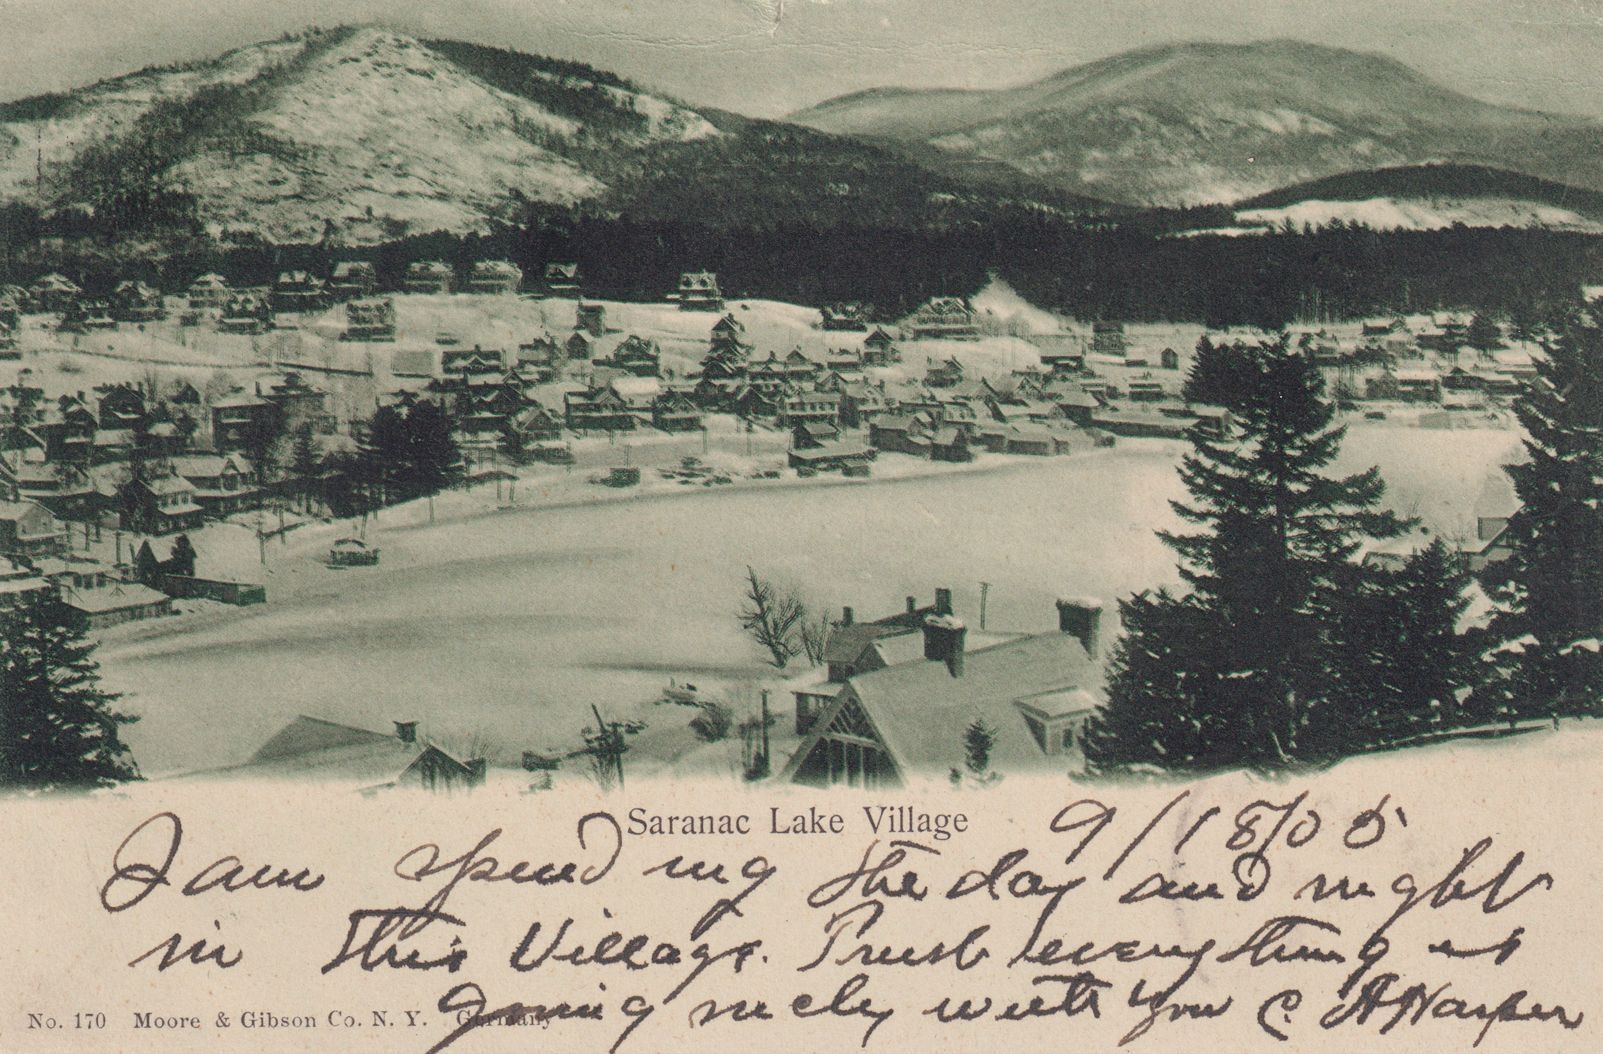 Saranac Lake Village
9/18/05
I am spending the day and night
in this Village. Trust everything is
going nicely with you C. A Harper
No. 170 Moore & Gibson Co. N. Y. Germany